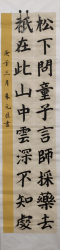 松下問童子言師採藥去
祇在此山中雲深不知處
三月 書